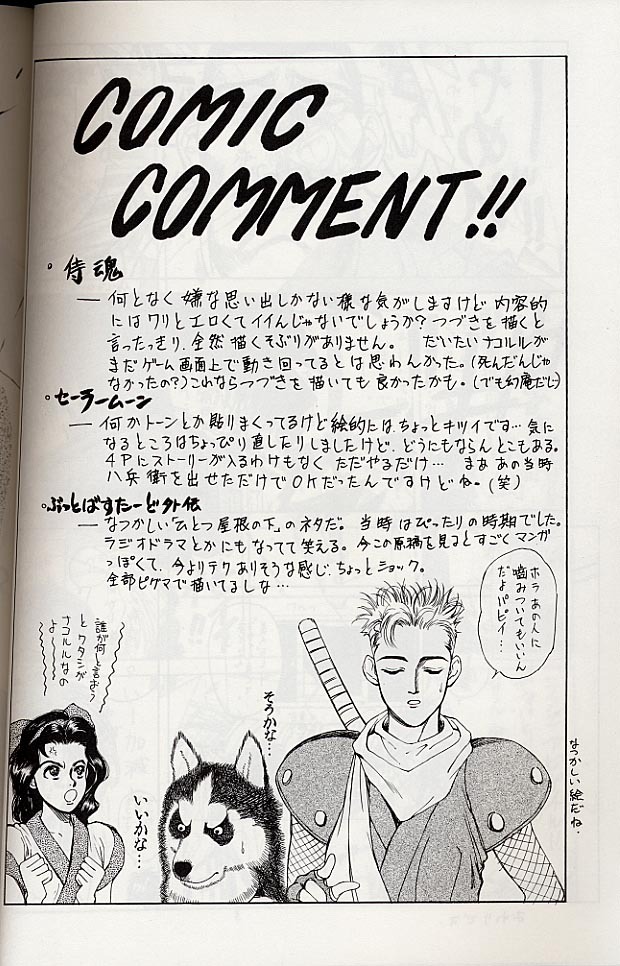 COMIC
COMMENT!!
。侍魂
― 何となく嫌な思い出しかない様な気がしますけど内容的
にはワリとエロくてイイんじゃないでしょうか？つづきを描くと
言ったっきり、全然描くそぶりがありません。 だいたいナコルルが
まだゲーム画面上で動き回ってるとは思わんかった。(死んだんじゃ
なかったの？)これならつづきを描いても良かったかも。(でも幻庵だし)
。セーラームーン
― 何かトーンとか貼りまくってるけど絵的には、ちょっとキツイです…気に
なるところはちょっぴり直したりしましたけど、どうにもならんとこもある。
4Pにストーリーが入るわけもなく ただやるだけ… まあ あの当時
八兵衛を出せただけでOKだったんですけどね。(笑)
。ぶっとばすたーど外伝
― なつかしい「ひとつ屋根の下」のネタだ。 当時はぴったりの時期でした。
ラジオドラマとかにもなってて笑える。今この原稿を見るとすごくマンガ
っぽくて、今よりテクありそうな感じ、ちょっとショック。
全部ピグマで描いてるしな…
ホラあの人に
噛みついてもいいん
だよパピィ…
誰が何と言おう
とワタシが
ナコルルなの
よ〜
そうかな…
いいかな…
なつかしい絵だね.